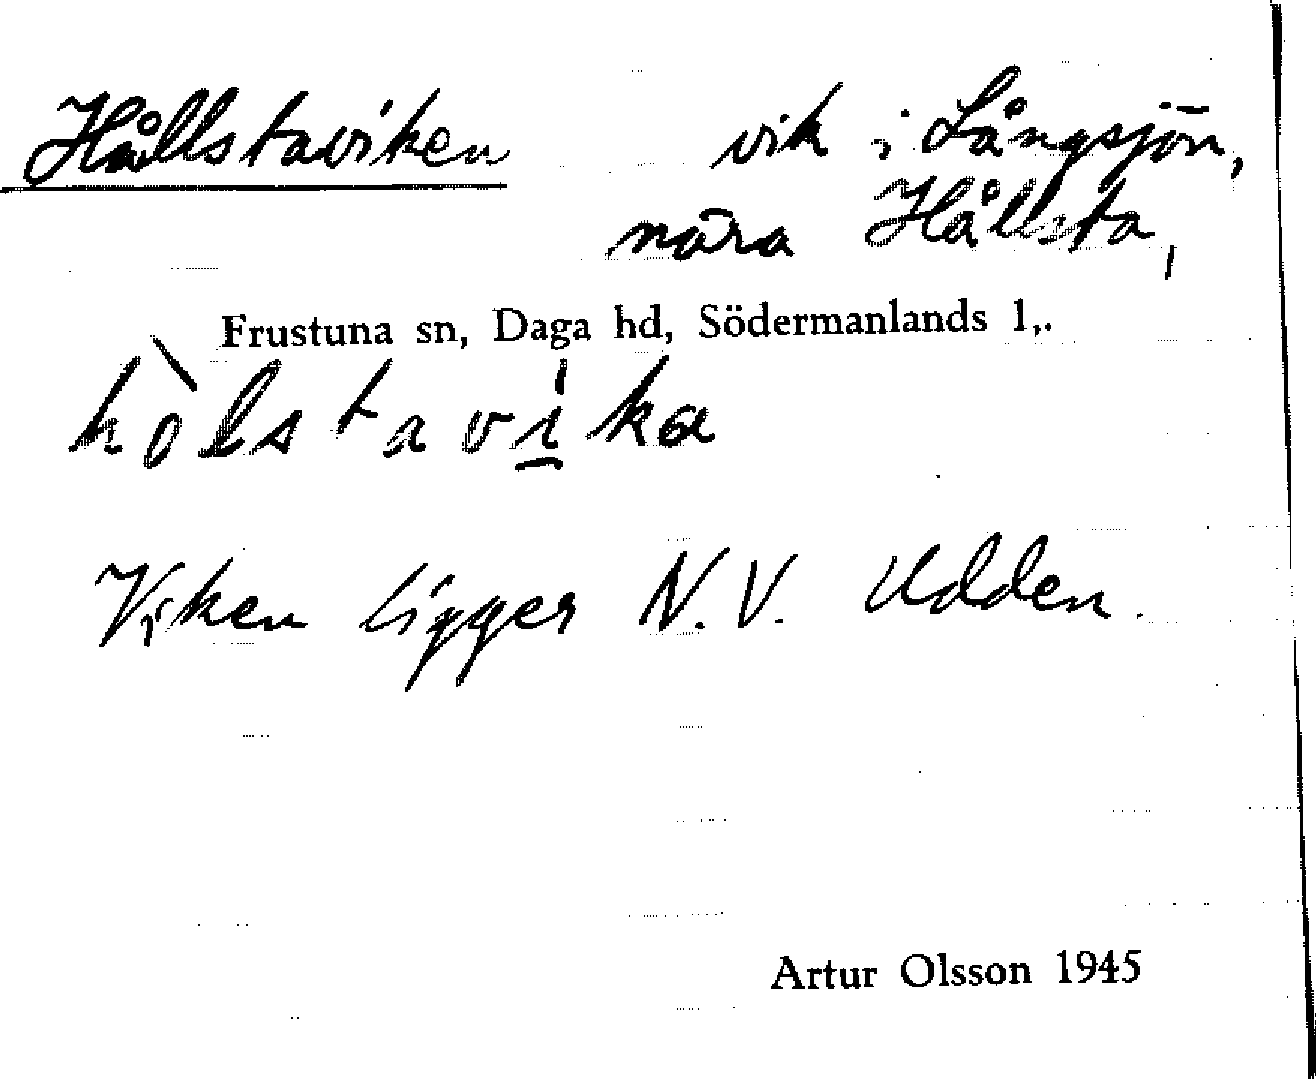 Hållstaviken vik i Långsjön,
nära Hållsta,
Frustuna sn, Daga hd, Södermanlands l,.
hòlstavi̱ka
Viken ligger N.V. Udden.
Artur Olsson 1945